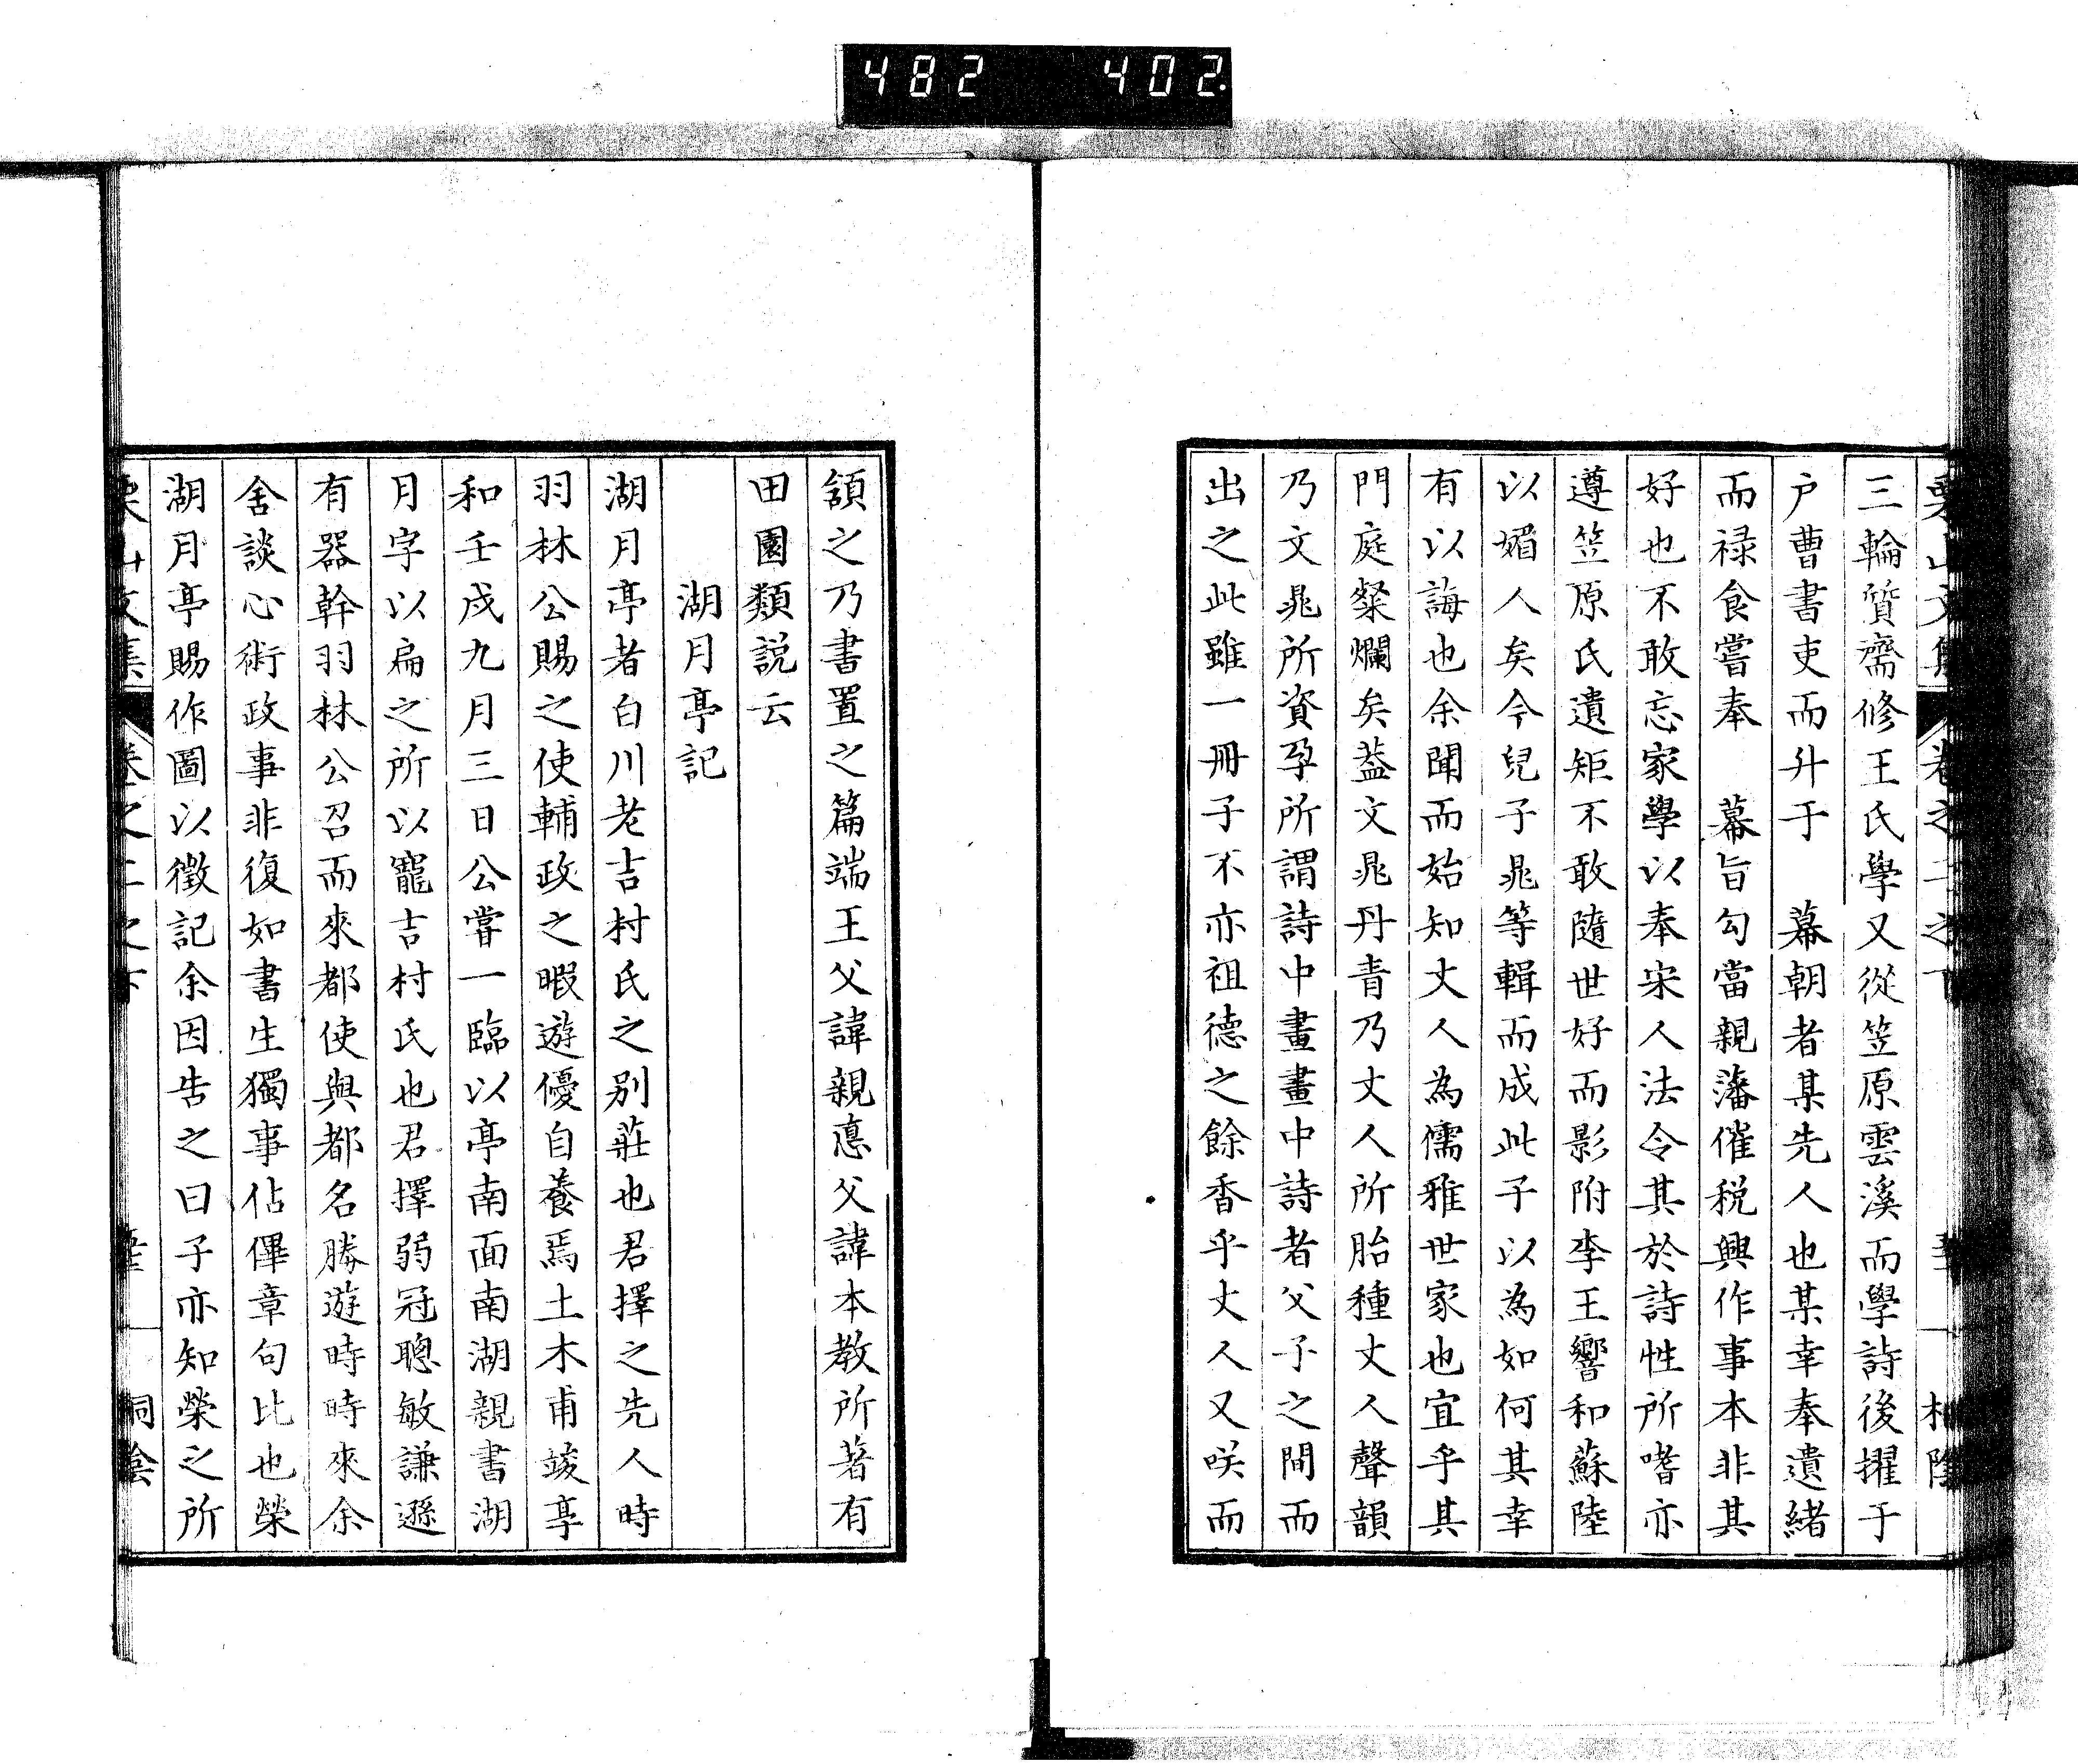 482 402.
三輪質齋修王氏學又從笠原雲溪而學詩後擢于
戶曹書吏而升于　幕朝者某先人也某幸奉遺緒
而祿食嘗奉　幕旨勾當親藩催稅興作事本非其
好也不敢忘家學以奉宋人法令其於詩性所嗜亦
遵笠原氏遺矩不敢隨世好而影附李王響和蘇陸
以媚人矣今兒子晁等輯而成此子以為如何其幸
有以誨也余聞而始知丈人為儒雅世家也宜乎其
門庭粲爛矣葢文晁丹青乃丈人所胎種丈人聲韻
乃文晁所資孕所謂詩中畫畫中詩者父子之間而
出之此雖一冊子不亦祖德之餘香乎丈人又咲而
頷之乃書置之篇端王父諱親憙父諱本教所著有
田園類説云
湖月亭記
湖月亭者白川老吉村氏之别莊也君擇之先人時
羽林公賜之使輔政之暇遊優自養焉土木甫竣享
和壬戌九月三日公嘗一臨以亭南面南湖親書湖
月字以扁之所以寵吉村氏也君擇弱冠聰敏謙遜
有器幹羽林公召而來都使與都名勝遊時時來余
舍談心術政事非復如書生獨事佔僤章句比也榮
湖月亭賜作圖以徵記余因告之曰子亦知榮之所
栗山文集　卷之二之下　桐陰